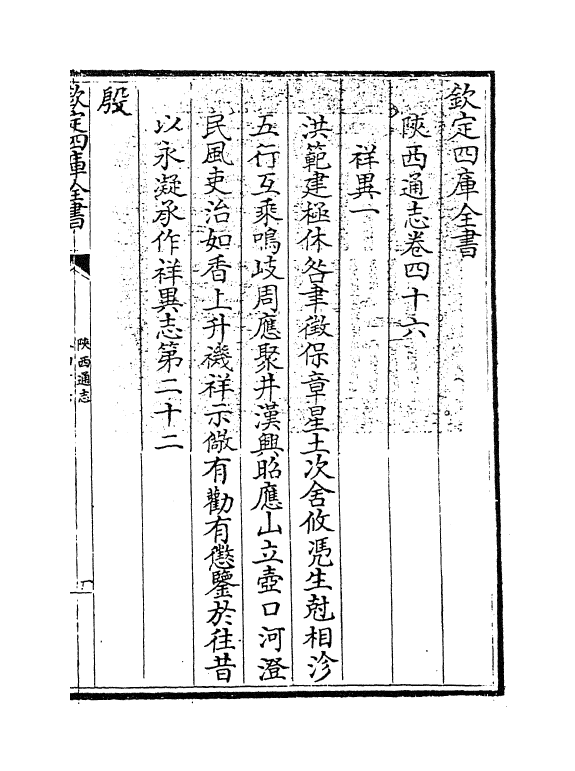 欽定四庫全書
陝西通志卷四十六
祥異一
洪範建極休咎聿徵保章星土次舍攸憑生尅相沴
五行互乘鳴岐周應聚井漢興昭應山立壺口河澄
民風吏治如香上升禨祥示儆有勸有懲鑒於往昔
以永凝承作祥異志第二十二
殷
欽定四庫全書
陝西通志